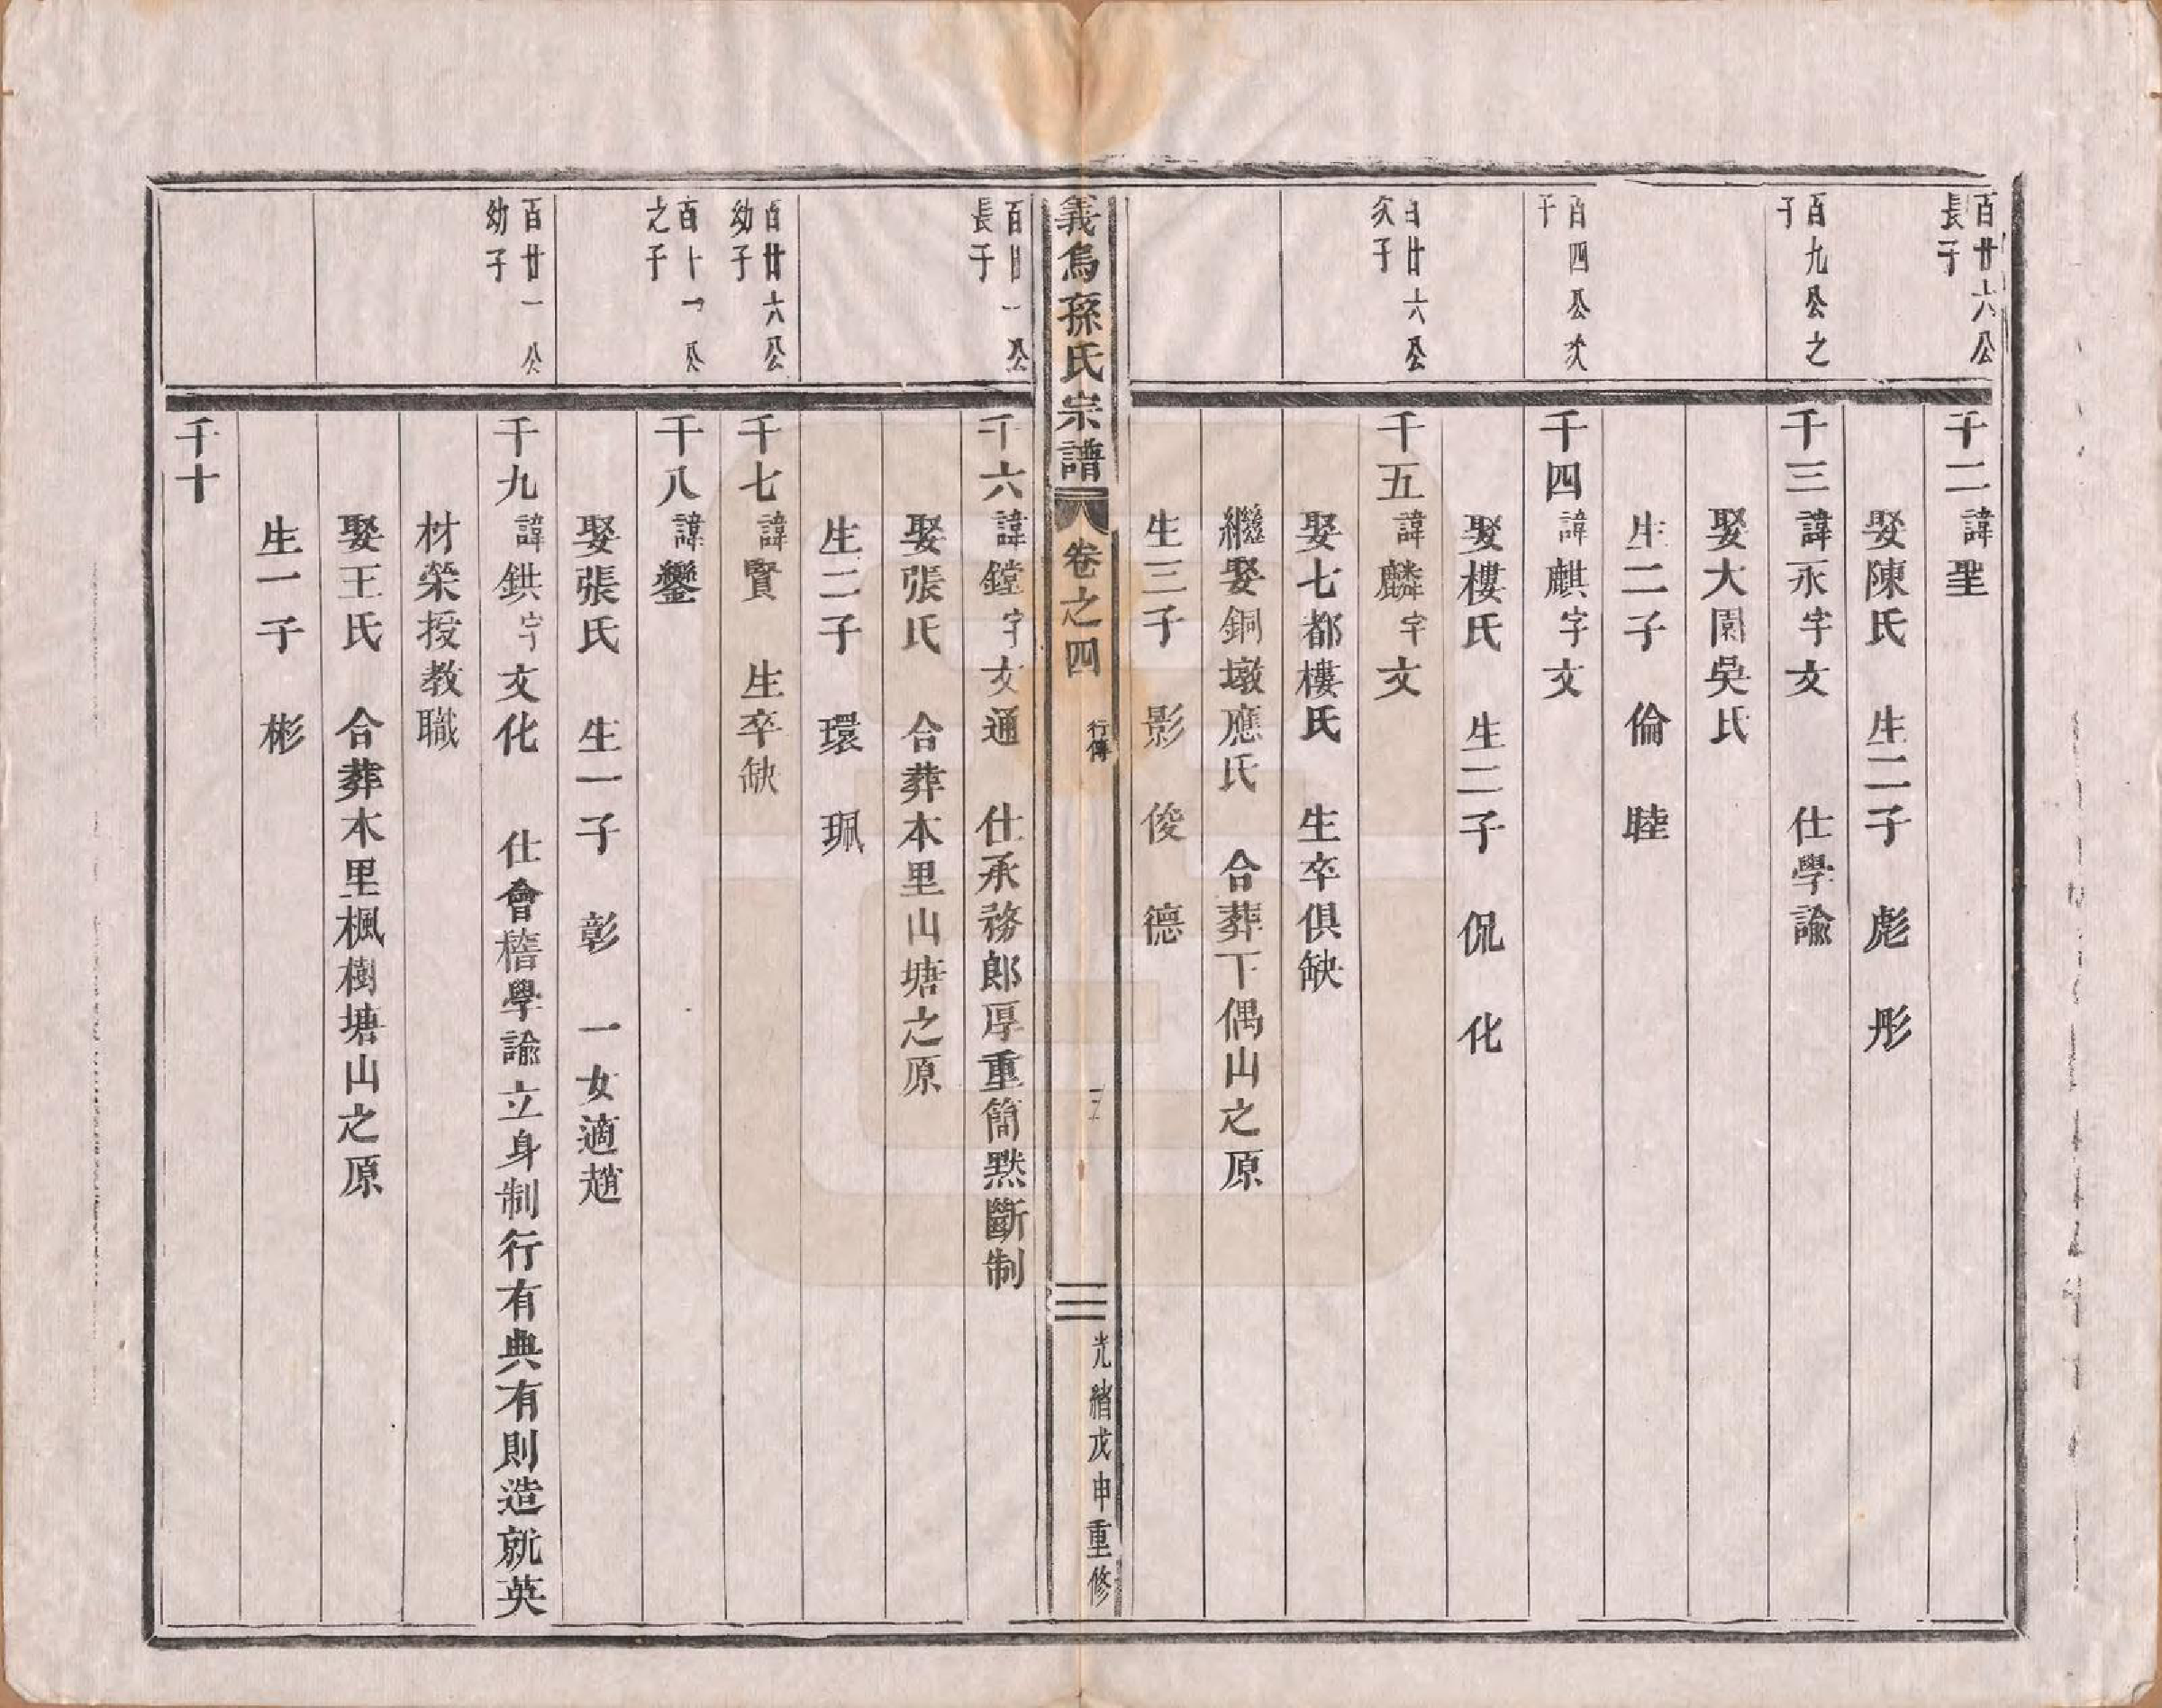 百廿六公
長子
千二諱聖
娶陳氏　生二子　彪　彤
百九公之
子
千三諱永字文　仕學諭
娶大園吳氏
生二子　倫　睦
百四公次
子
千四諱麒字文
娶樓氏　生二子　侃　化
百廿六公
次子
千五諱麟字文
娶七都樓氏　生卒俱缺
繼娶銅墩應氏　合葬下偶山之原
生三子　影　俊　德
義烏孫氏宗譜　卷之四　行傳　三　光緒戊申重修
百廿一公
長子
千六諱鏜字文通　仕承務郎厚重簡黙斷制
娶張氏　合葬本里山塘之原
生二子　環　珮
百廿六公
幼子
千七諱賢　生卒缺
百十一公
之子
千八諱鑾
娶張氏　生一子　彰　一女適趙
百廿一公
幼子
千九諱鉷字文化　仕會稽學諭立身制行有典有則造就英
材榮授教職
娶王氏　合葬本里楓樹塘山之原
生一子　彬
千十